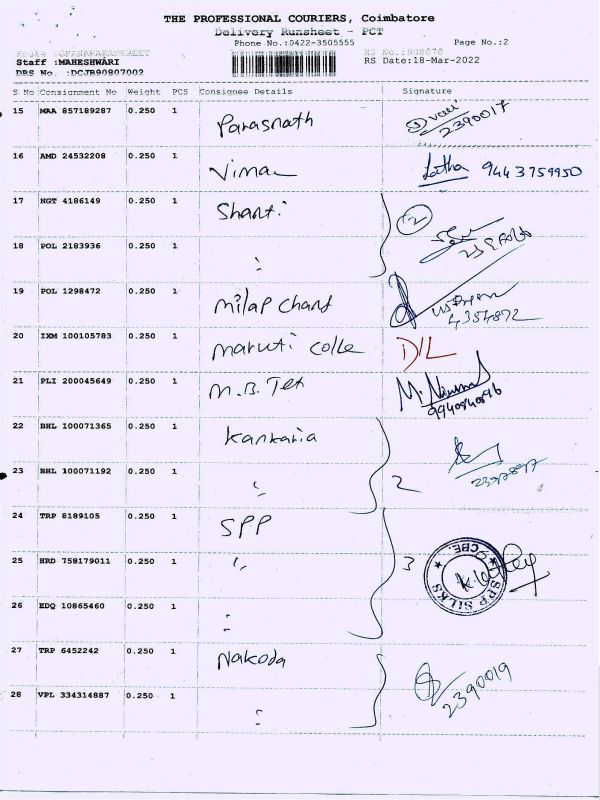 THE PROFESSIONAL COURIERS, Coimbatore
Delivery Runsheet - PCT
Phone No.:0422-3505555 Page No.:2
RS No.:908070
Staff :MAHESHWARI RS Date:18-Mar-2022
DRS No. :DCJB90807002
S No Consignment No Weight PCS Consignee Details Signature
15 MAA 857189287 0.250 1 Parasnath 2390017
16 AMD 24532208 0.250 1 Vimal Latha 9443759950
17 NGT 4186149 0.250 1 Shanti 2
18 POL 2183936 0.250 1 "
19 POL 1298472 0.250 1 milap chand 4354872
20 IXM 100105783 0.250 1 maruti colle D/L
21 PLI 200045649 0.250 1 M.B. Tex M. 9940840896
22 BHL 100071365 0.250 1 Kankaria
23 BHL 100071192 0.250 1 " 2
24 TRP 8189105 0.250 1 SPP
25 HRD 758179011 0.250 1 " 3 SPP SILKS CBE.
26 EDQ 10865460 0.250 1 "
27 TRP 6452242 0.250 1 Nakoda 2390019
28 VPL 334314887 0.250 1 "